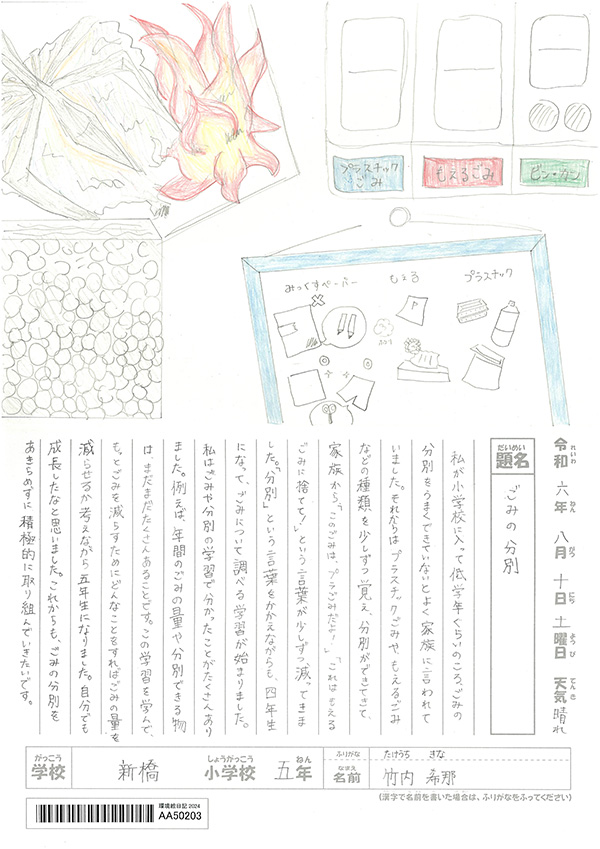 プラスチック
ごみ
もえるごみ
ビン・カン
みっくすペーパー
もえる
プラスチック
令和 六年 八月 十日 土曜日 天気 晴れ
れいわ ねん がつ にち ようび てんき
だいめい
題名
ごみの分別
私が小学校に入って低学年くらいのころ、ごみの
分別をうまくできていないとよく家族に言われて
いました。それからはプラスチックごみや、もえるごみ
などの種類を少しずつ覚え、分別ができてきて、
家族から、「このごみは、プラごみだよ!」「これはもえる
ごみに捨てて!」という言葉が少しずつ減ってきま
した。「分別」という言葉をかかえながらも、四年生
になって、ごみについて調べる学習が始まりました。
私はごみや分別の学習で分かったことがたくさんあり
ました。例えば、年間のごみの量や分別できる物
は、まだまだたくさんあることです。この学習を学んで、
もっとごみを減らすためにどんなことをすればごみの量を
減らせるか考えながら五年生になりました。自分でも
成長したなと思いました。これからも、ごみの分別を
あきらめずに積極的に取り組んでいきたいです。
がっこう しょうがっこう ねん ふりがな たけうち きな
学校 新橋 小学校 五年 なまえ 名前 竹内 希那
(漢字で名前を書いた場合は、ふりがなをふってください)
環境絵日記 2024
AA50203